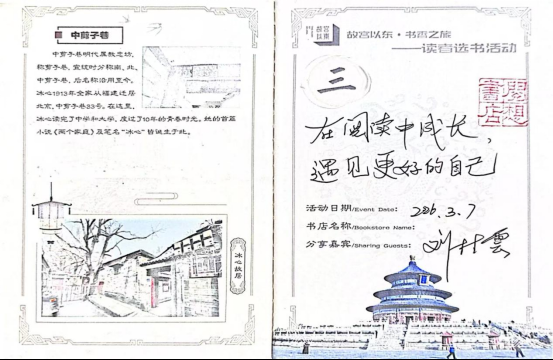 中剪子巷
中剪子巷明代属教忠坊,
称剪子巷, 宣统时分称南、北、
中剪子巷, 后名称沿用至今。
冰心1913年全家从福建迁居
北京, 中剪子巷33号。在这里,
冰心读完了中学和大学, 度过了10年的青春时光。她的首篇
小说《两个家庭》及笔名“冰心”皆诞生于此。
冰心故居
故宫以东
故宫以东·书香之旅
——读者选书活动
三
在阅读中成长,
遇见更好的自己
活动日期/Event Date: 3.7
书店名称/Bookstore Name:
分享嘉宾/Sharing Guests: 刘 雲
書店